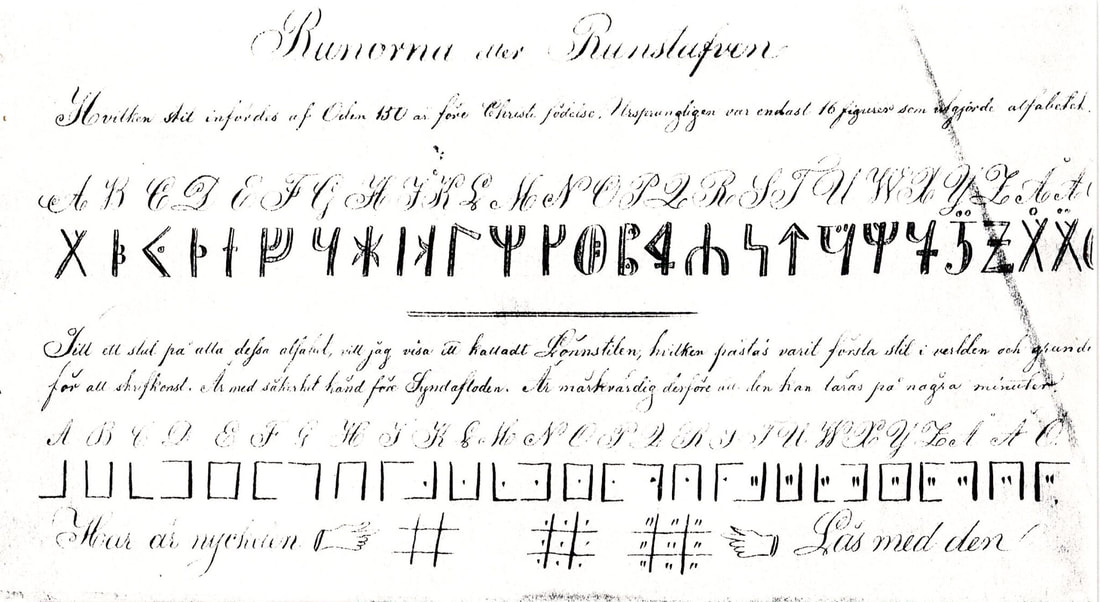 Runorna eller Runstafven
Hvilken stil infördes af Oden 150 år före Christi födelse. Ursprungligen var endast 16 figurer som utgjorde alfabetet.
A B C D E F G H I K L M N O P Q R S T U W X Y Z Å Ä
Till ett slut på alla dessa alfabet, vill jag visa ett kalladt Lönnstilen, hvilken påstås varit första stil i verlden och grunde
för all skrifkonst. Är med säkerhet känd före Syndafloden. Är märkvärdig derföre att den kan läras på några minuter.
A B C D E F G H I K L M N O P Q R S T U W X Y Z Å Ä Ö
Här är nyckelen Läs med den!